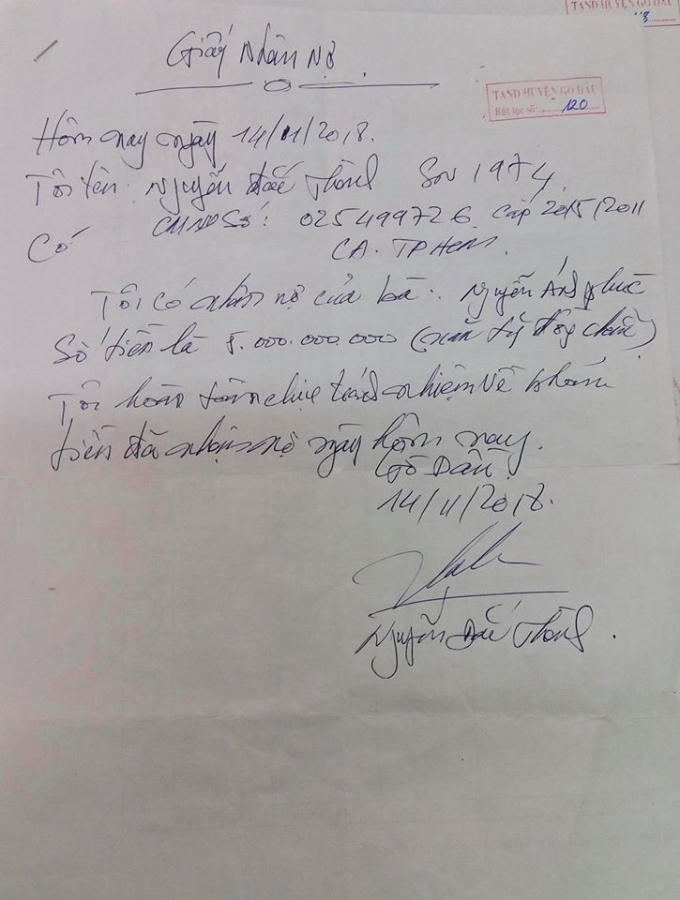 TAND HUYỆN GÒ DẦU
Giấy Nhận Nợ
TAND HUYỆN GÒ DẦU
Bút lục số: 120
Hôm nay ngày 14/11/2018.
Tôi tên: Nguyễn Đắc Thành SN 1974
CMND Số: 025499726 cấp 20/5/2011
Có CA. TPHCM.
Tôi có nhận nợ của bà: Nguyễn Ánh
Số tiền là 5.000.000.000 (năm tỷ đồng chẵn)
Tôi hoàn toàn chịu trách nhiệm về khoản
tiền đã nhận nợ ngày hôm nay.
Gò Dầu
14/11/2018.
Nguyễn Đắc Thành.